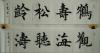 鶴壽松齡
觀海聽濤